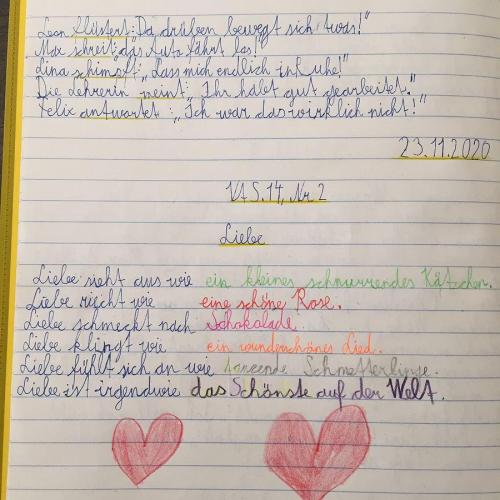 Leon flüstert: „Da drüben bewegt sich was!"
Max schreit: „Das Auto fährt los!"
Lina schimpft: „Lass mich endlich in Ruhe!"
Die Lehrerin meint: „Ihr habt gut gearbeitet."
Felix antwortet: „Ich war das wirklich nicht!"
23.11.2020
VA S.14, Nr. 2
Liebe
Liebe sieht aus wie ein kleines schnurrendes Kätzchen.
Liebe riecht wie eine schöne Rose.
Liebe schmeckt nach Schokolade.
Liebe klingt wie ein wunderschönes Lied.
Liebe fühlt sich an wie tanzende Schmetterlinge.
Liebe ist irgendwie das Schönste auf der Welt.